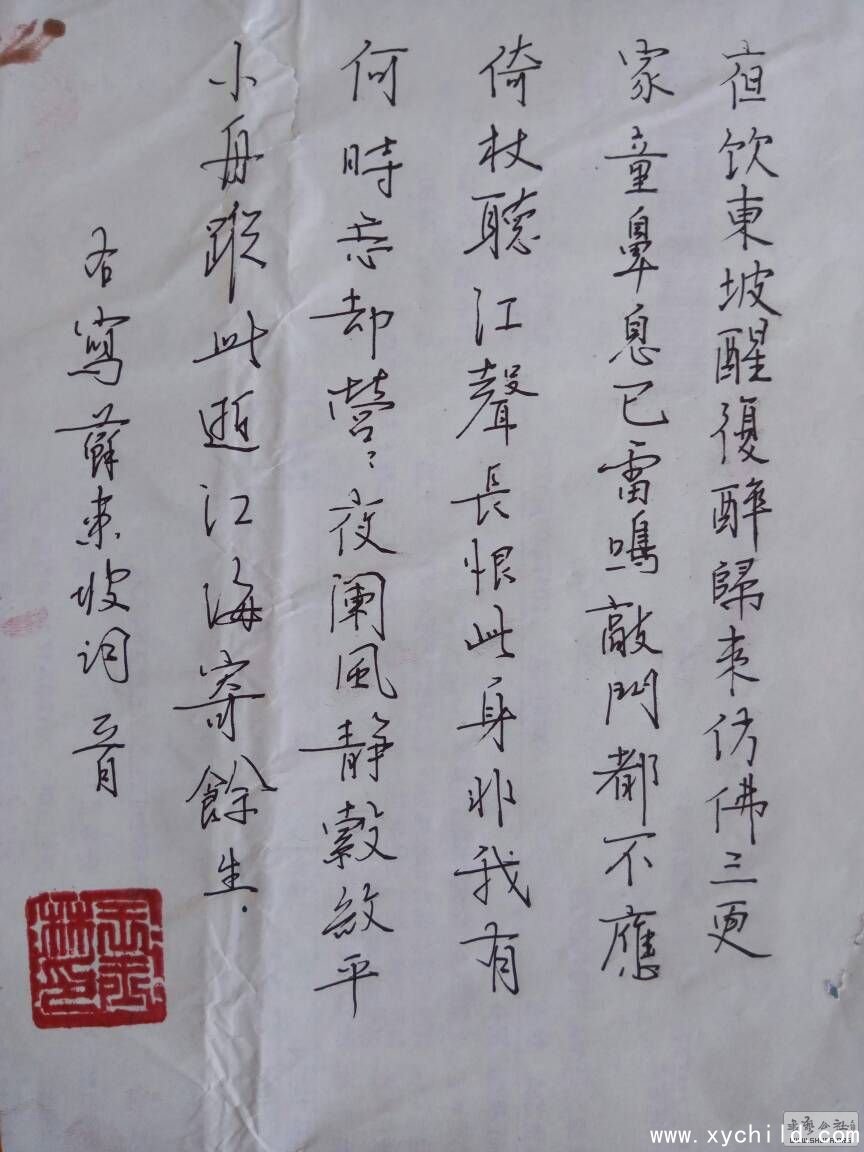 夜饮東坡醒復醉歸来仿佛三更
家童鼻息已雷鳴敲門都不應
倚杖聽江聲長恨此身非我有
何時忘却營〻夜阑風静縠紋平
小舟踪此逝江海寄餘生
右寫蘇東坡詞
www.xychild.com